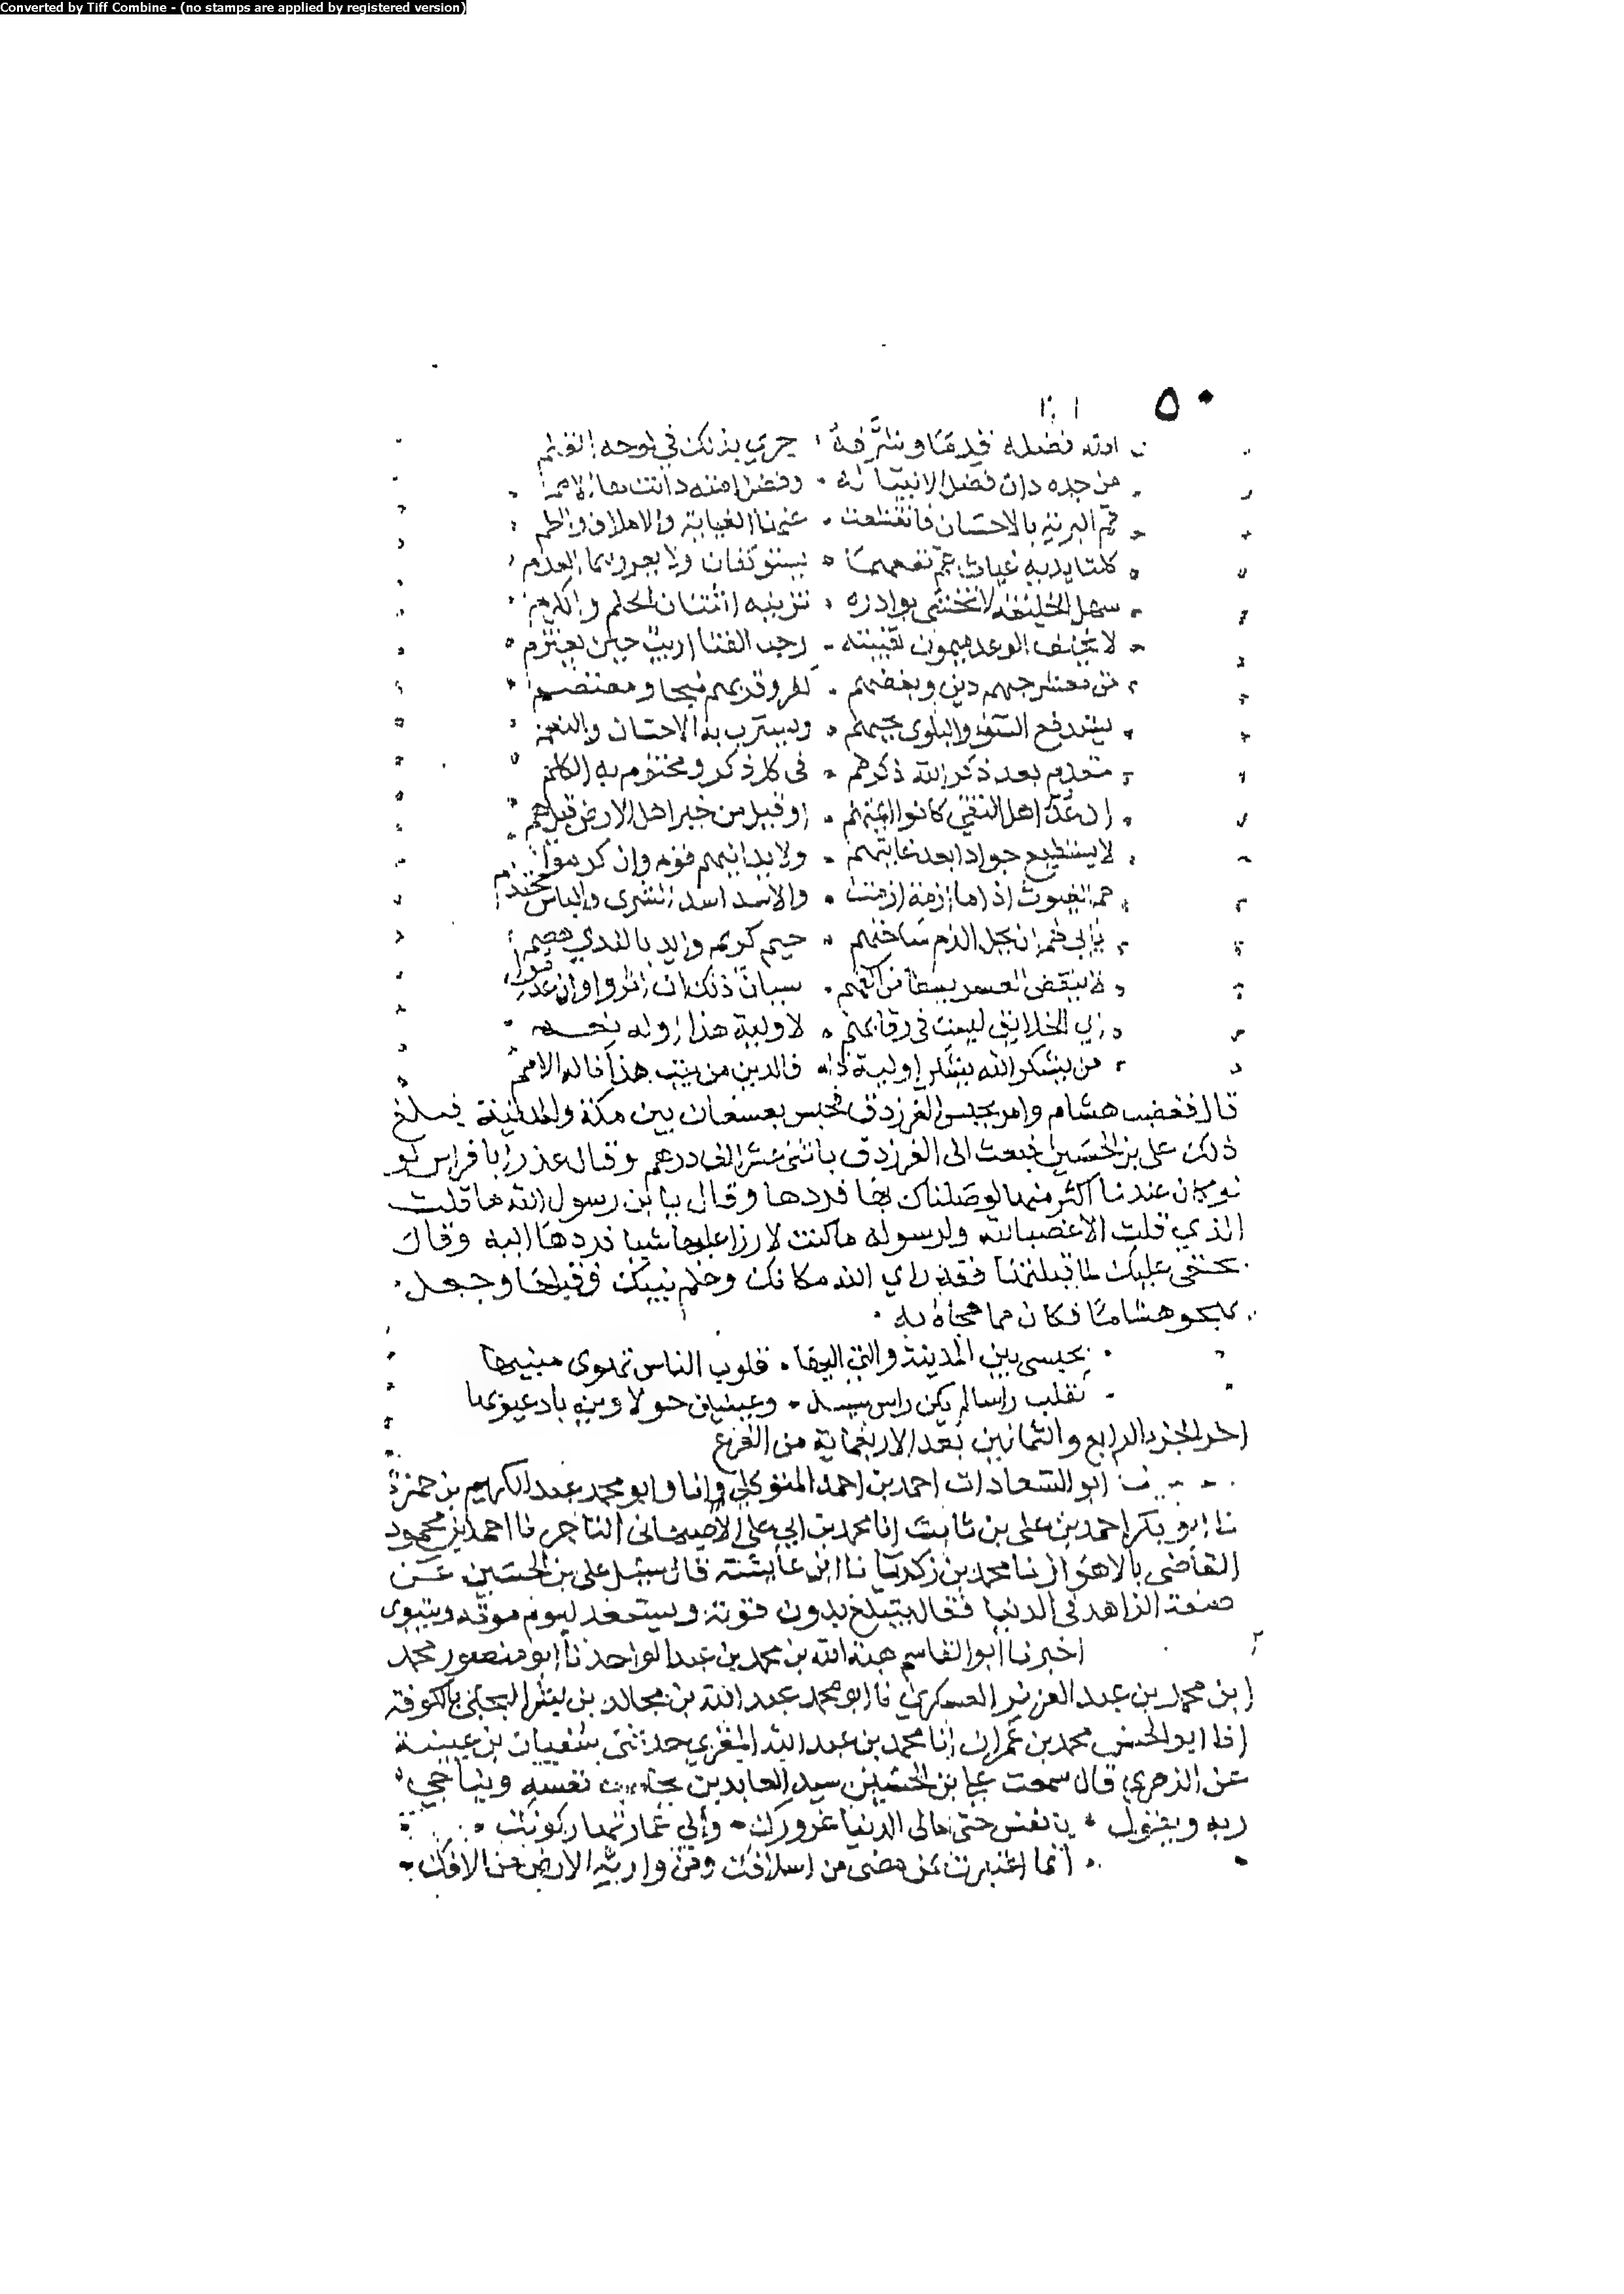 Converted by Tiff Combine - (no stamps are applied by registered version)
٥٠
الله فضله قدما وشرفه جرى بذلك في لوحه القلم
من جده دان فضل الانبيا له وفضل امته دانت لها الامم
عم البرية بالاحسان فانقشعت عنها الغيابة والاملاق والظلم
كلتا يديه غياث عم نفعهما يستوكفان ولا يعروهما العدم
سهل الخليقة لا تخشى بوادره تزينه اثنتان الحلم والكرم
لا يخلف الوعد ميمون نقيبته رحب الفنا اريب حين يعتزم
من معشر حبهم دين وبغضهم كفر وقربهم منجا ومعتصم
يستدفع السوء والبلوى بحبهم ويسترب به الاحسان والنعم
مقدم بعد ذكر الله ذكرهم في كل ذكر ومختوم به الكلم
ان عد اهل التقى كانوا ائمتهم او قيل من خير اهل الارض قيل هم
لا يستطيع جواد بعد غايتهم ولا يدانيهم قوم وان كرموا
هم الغيوث اذا ما ازمة ازمت والاسد اسد الشرى والباس محتدم
يابى لهم ان يحل الذم ساحتهم خيم كريم وايد بالندى هضم
لا ينقص العسر بسطا من اكفهم سيان ذلك ان اثروا وان عدموا
اي الخلايق ليست في رقابهم لاولية هذا او له نعم
من يشكر الله يشكر اولية ذا فالدين من بيت هذا ناله الامم
قال فغضب هشام وامر بحبس الفرزدق فحبس بعسفان بين مكة والمدينة فبلغ
ذلك على بن الحسين فبعث الى الفرزدق باثنى عشر الف درهم وقال اعذر ابا فراس لو
كان عندنا اكثر منها لوصلناك بها فردها وقال يا بن رسول الله ما قلت
الذي قلت الا غضبا لله ولرسوله ما كنت لارزا عليها شيا فردها اليه وقال
بحقي عليك لما قبلتها فقد راى الله مكانك وعلم نيتك فقبلها وجعل
يهجو هشاما فكان مما هجاه به
يحبسى بين المدينة والتي اليها قلوب الناس تهوى منيبها
تقلب راسا لم يكن راس سيد وعينين حولاوين باد عيوبها
اخر الجزء الرابع والثمانين بعد الاربعماية من الفرع
ابو السعادات احمد بن احمد المتوكلي وانا ابو محمد عبد الكريم بن حمزة
نا ابو بكر احمد بن على بن ثابت انا محمد بن ابي على الاصبهانى التاجر نا احمد بن محمود
القاضى بالاهواز نا محمد بن زكريا نا ابن عايشة قال سيل على بن الحسين عن
صفة الزاهد في الدنيا فقال يتبلغ بدون قوته ويستعد ليوم موته
اخبرنا ابو القاسم هبة الله بن محمد بن عبد الواحد نا ابو منصور محمد
ابن محمد بن عبد العزيز العسكري نا ابو محمد عبد الله بن مجالد بن بشر البجلى بالكوفة
انا ابو الحسن محمد بن عمران انا محمد بن عبد الله المقري حدثنى سفيان بن عيينة
عن الزهري قال سمعت على بن الحسين سيد العابدين يحاسب نفسه ويناجي
ربه ويقول يا نفس حتى مالى الدنيا غرورك والى عمارتها ركونك
اما اعتبرت بمن مضى من اسلافك ومن وارته الارض من الافك